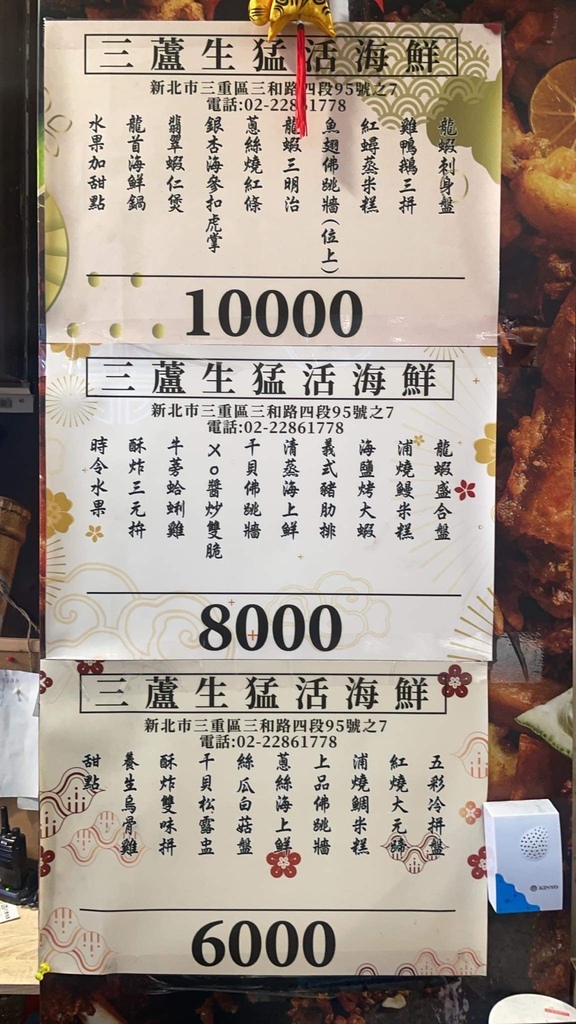 三蘆生猛活海鮮
新北市三重區三和路四段95號之7
電話:02-22861778
龍蝦刺身盤
雞鴨鵝三拼
紅蟳蒸米糕
魚翅佛跳牆(位上)
龍蝦三明治
蔥絲燒紅條
銀杏海參扣虎掌
翡翠蝦仁煲
龍首海鮮鍋
水果加甜點
10000
三蘆生猛活海鮮
新北市三重區三和路四段95號之7
電話:02-22861778
龍蝦盛合盤
浦燒鰻米糕
海鹽烤大蝦
義式豬肋排
清蒸海上鮮
干貝佛跳牆
XO醬炒雙脆
牛蒡蛤蜊雞
酥炸三元拚
時令水果
8000
三蘆生猛活海鮮
新北市三重區三和路四段95號之7
電話:02-22861778
五彩冷拼盤
紅燒大元蹄
浦燒鯛米糕
上品佛跳牆
蔥絲海上鮮
絲瓜白菇盤
干貝松露盅
酥炸雙味拼
養生烏骨雞
甜點
6000
KINYO